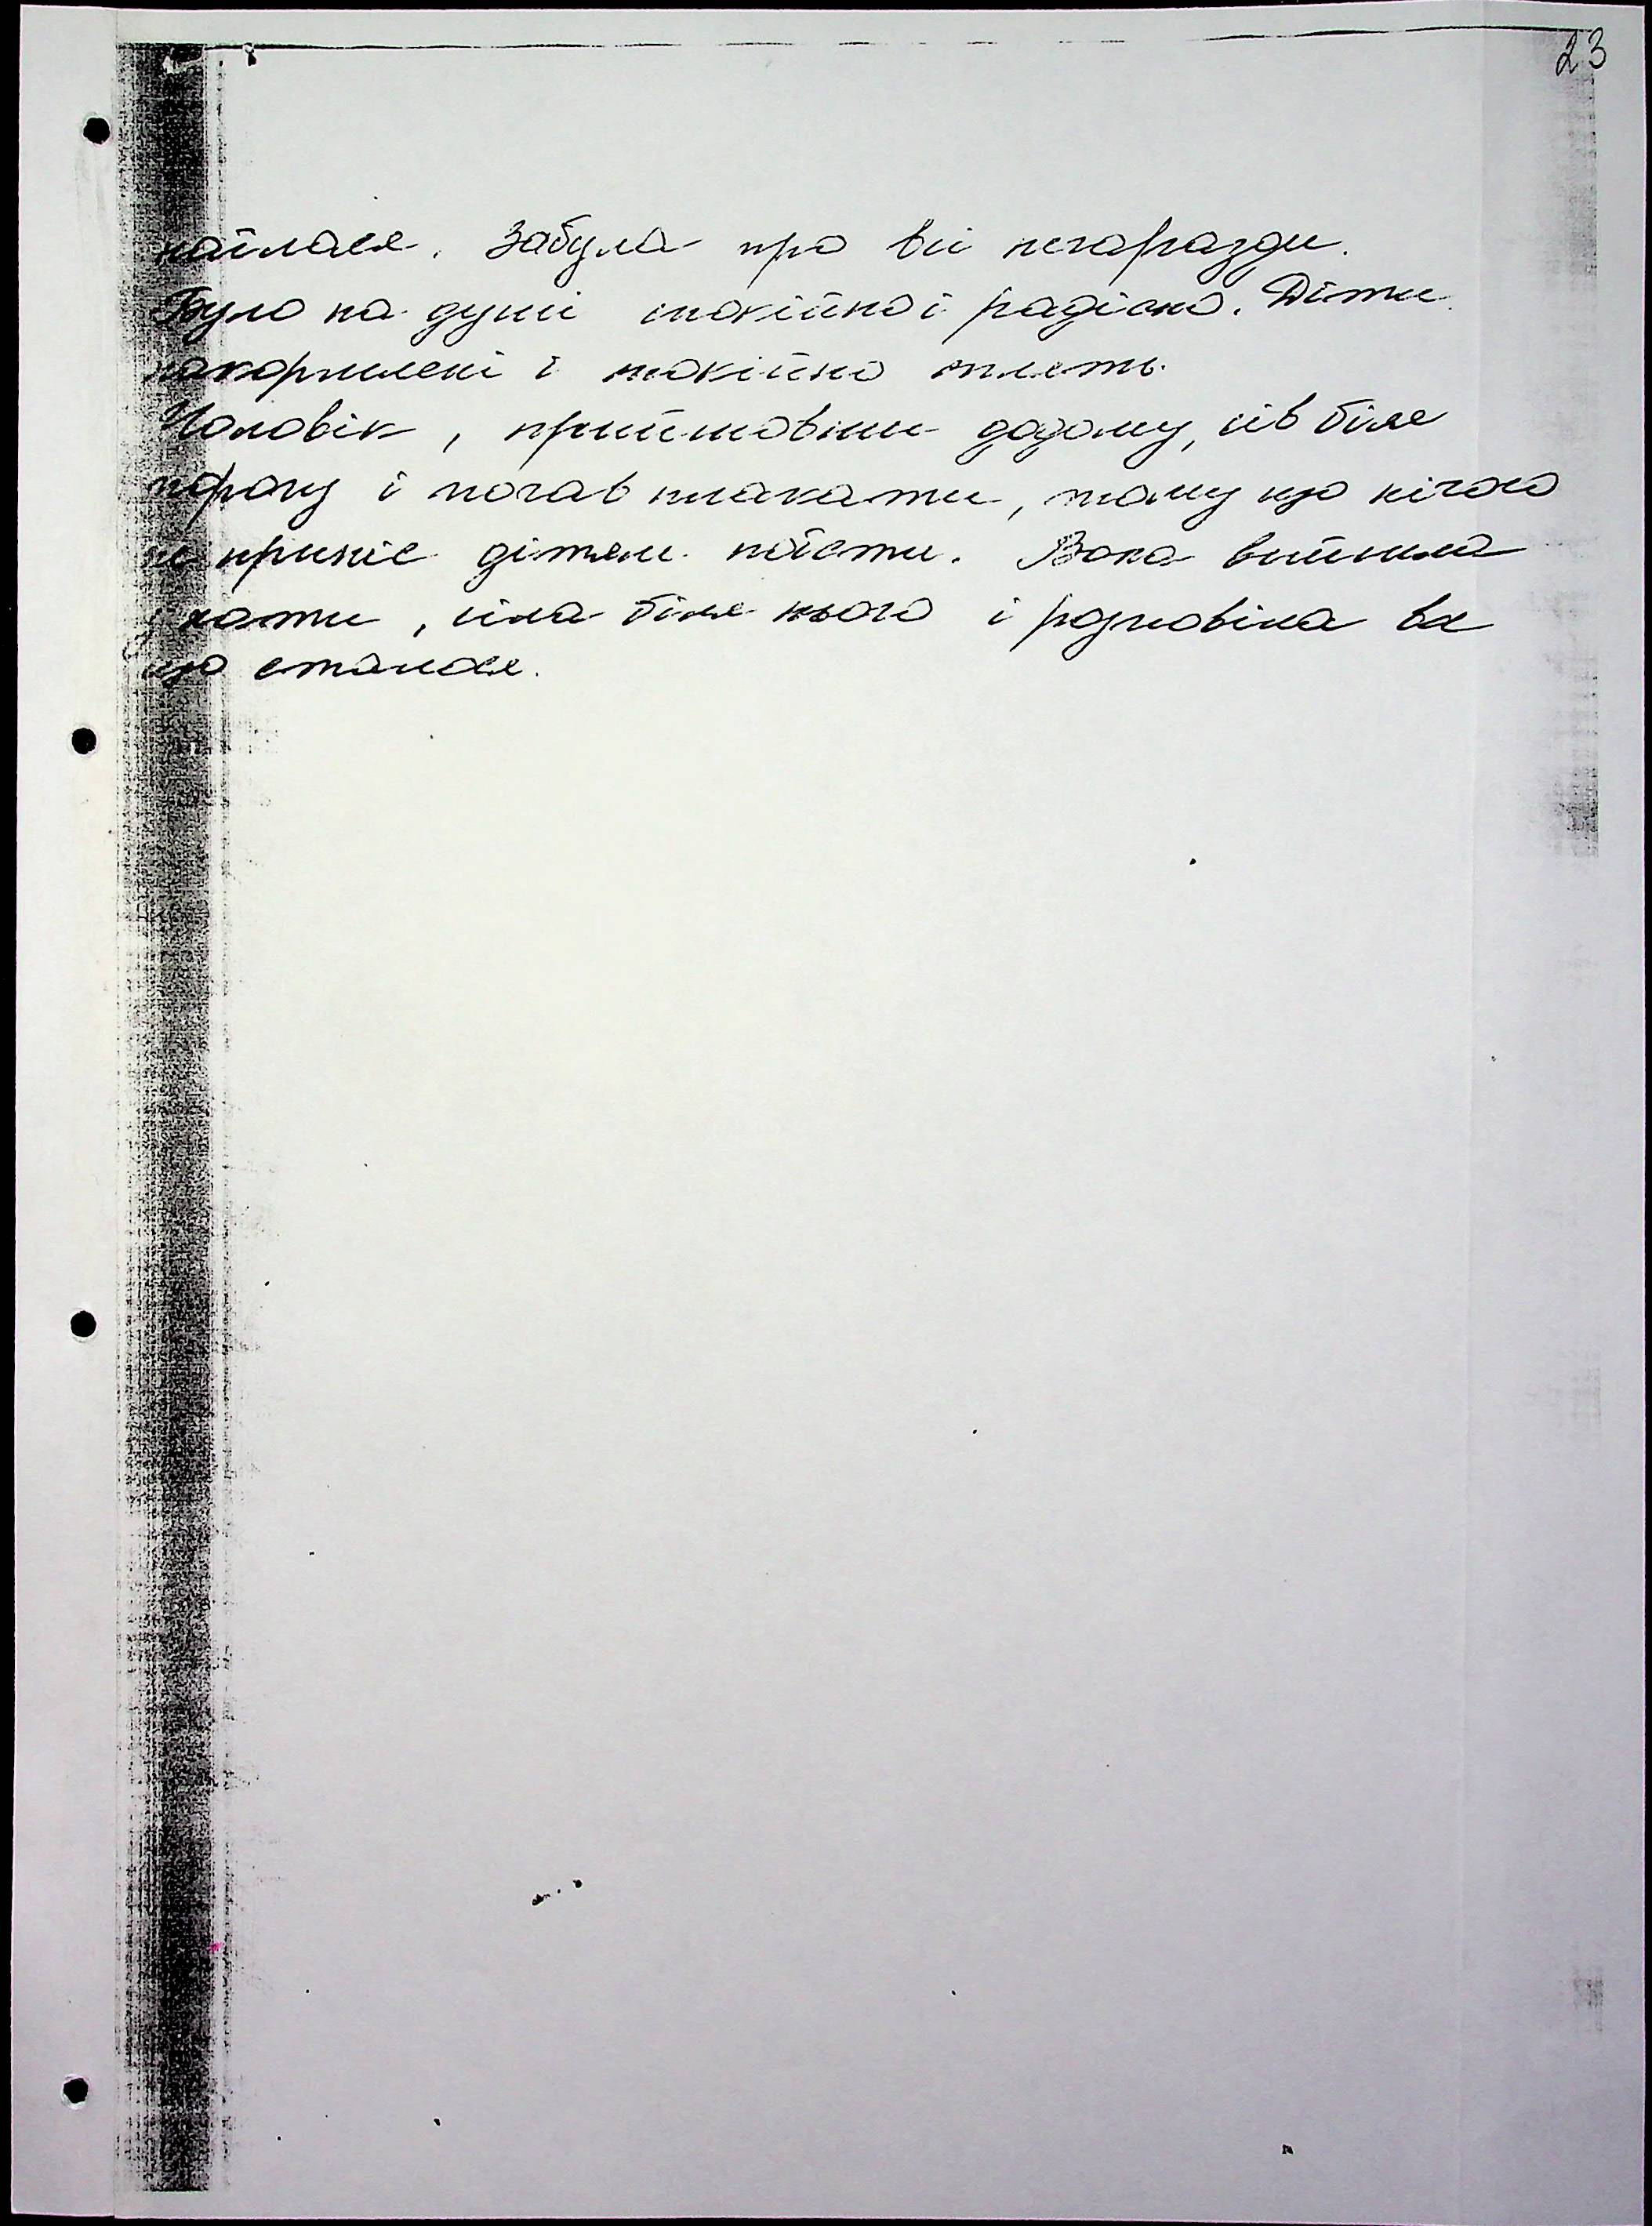 23
наїлася. Забула про всі негаразди.
Було на душі спокійно і радісно. Діти
накормлені і спокійно сплять.
Чоловік, прийшовши додому, сів біля
порогу і почав плакати, тому що нічого
не приніс дітям поїсти. Вона вийшла
з хати, сіла біля нього і розповіла все
що сталося.